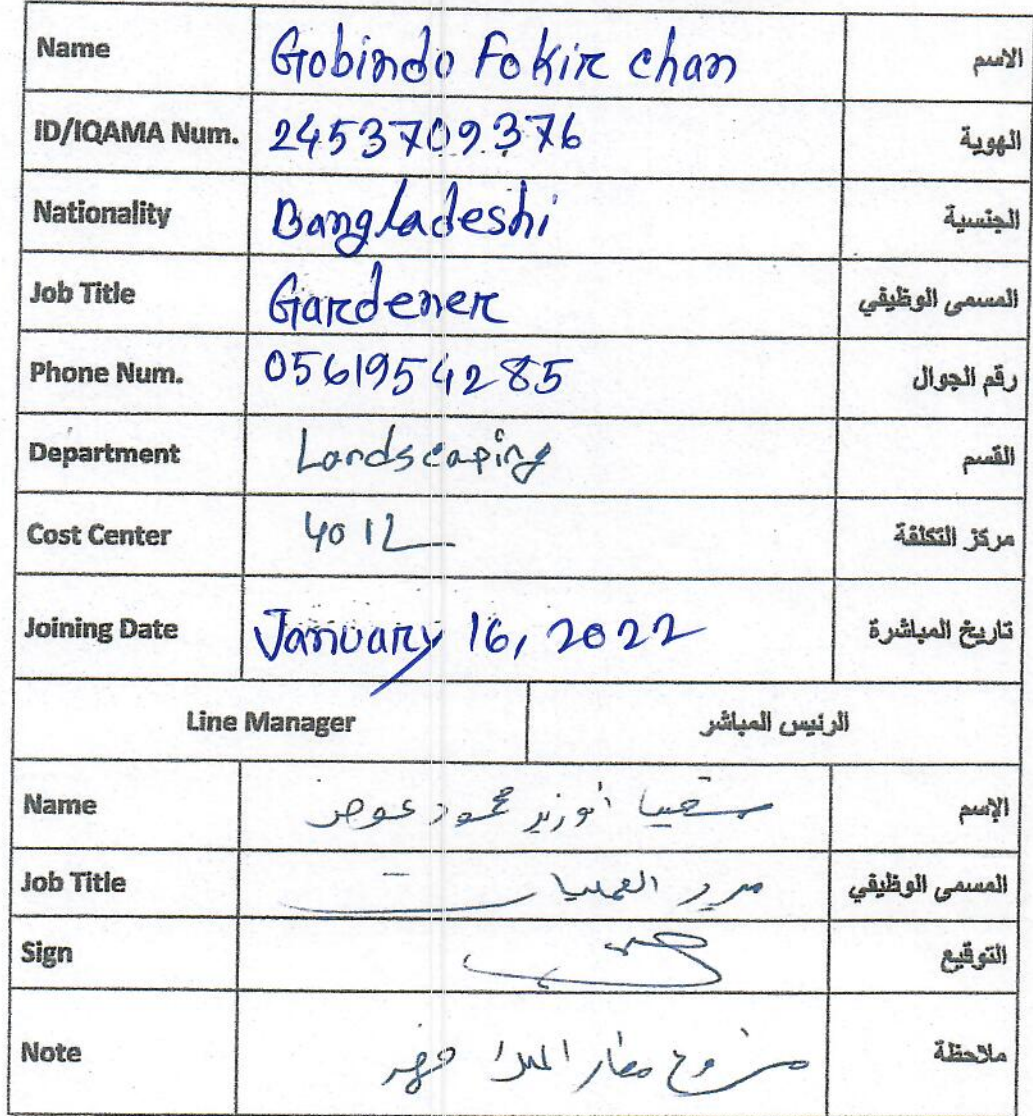 Name Gobindo Fokir chan الاسم
ID/IQAMA Num. 2453709376 الهوية
Nationality Bangladeshi الجنسية
Job Title Gardener المسمى الوظيفي
Phone Num. 0561954285 رقم الجوال
Department Landscaping القسم
Cost Center 4012 مركز التكلفة
Joining Date January 16, 2022 تاريخ المباشرة
Line Manager الرئيس المباشر
Name محمود عوض الإسم
Job Title مدير العمليات المسمى الوظيفي
Sign التوقيع
Note مشروع مطار الملك فهد ملاحظة